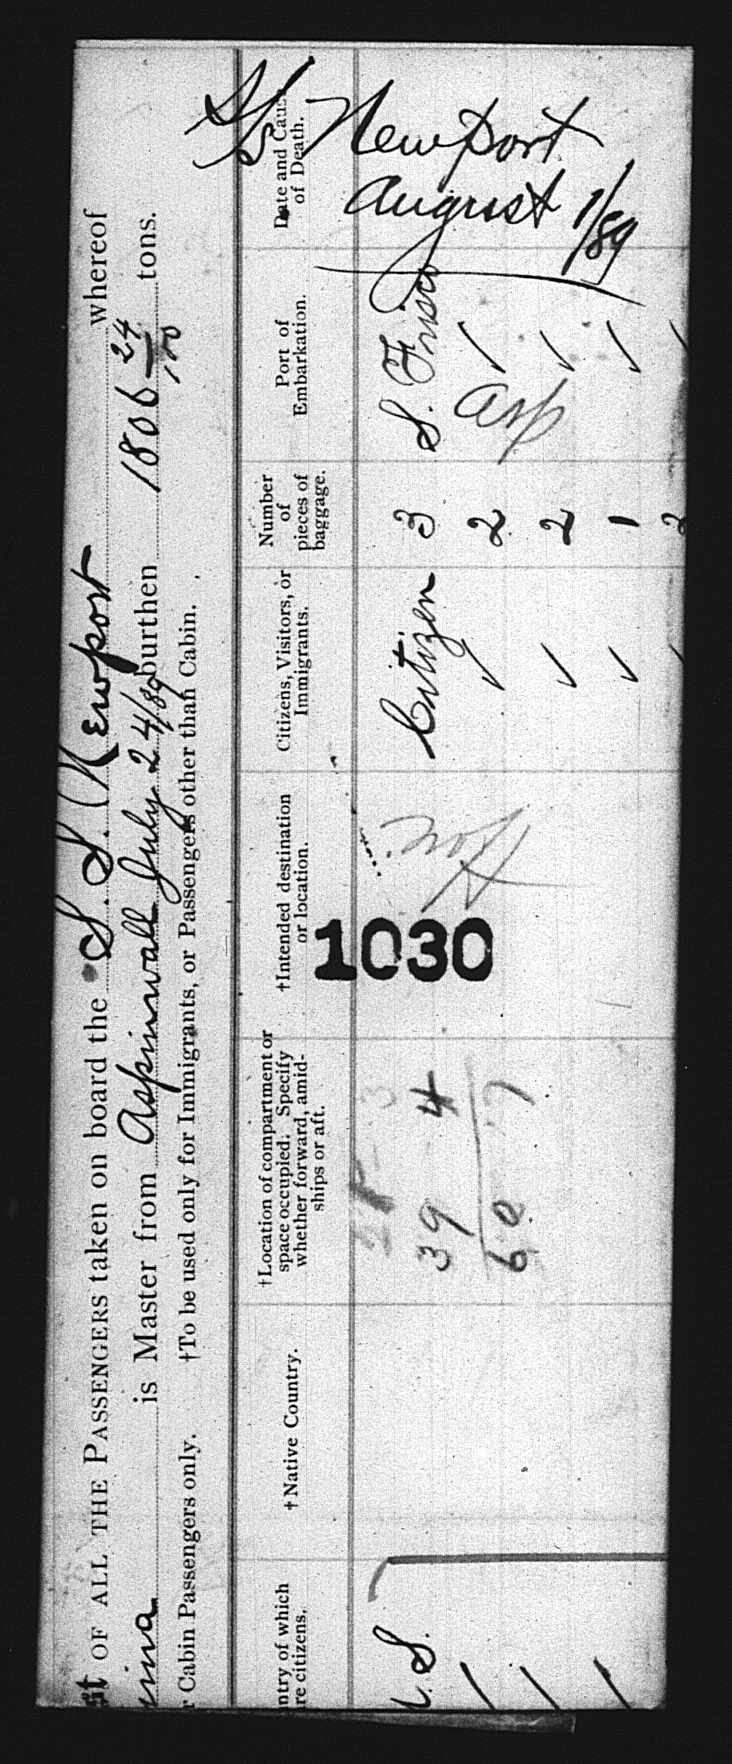 S/S Newport
August 1/89
st OF ALL THE PASSENGERS taken on board the S. S. Newport whereof
is Master from Aspinwall July 24/89 burthen 1806 24/100 tons.
Cabin Passengers only. †To be used only for Immigrants, or Passengers other than Cabin.
ntry of which
re citizens.
†Native Country.
†Location of compartment or
space occupied. Specify
whether forward, amid-
ships or aft.
†Intended destination
or location.
Citizens, Visitors, or
Immigrants.
Number
of
pieces of
baggage.
Port of
Embarkation.
Date and Cause
of Death.
1030
U.S. Citizen 3 S. Frisco
✓ 2 Asp ✓
✓ 2 ✓
✓ 1 ✓
2
39 4
60